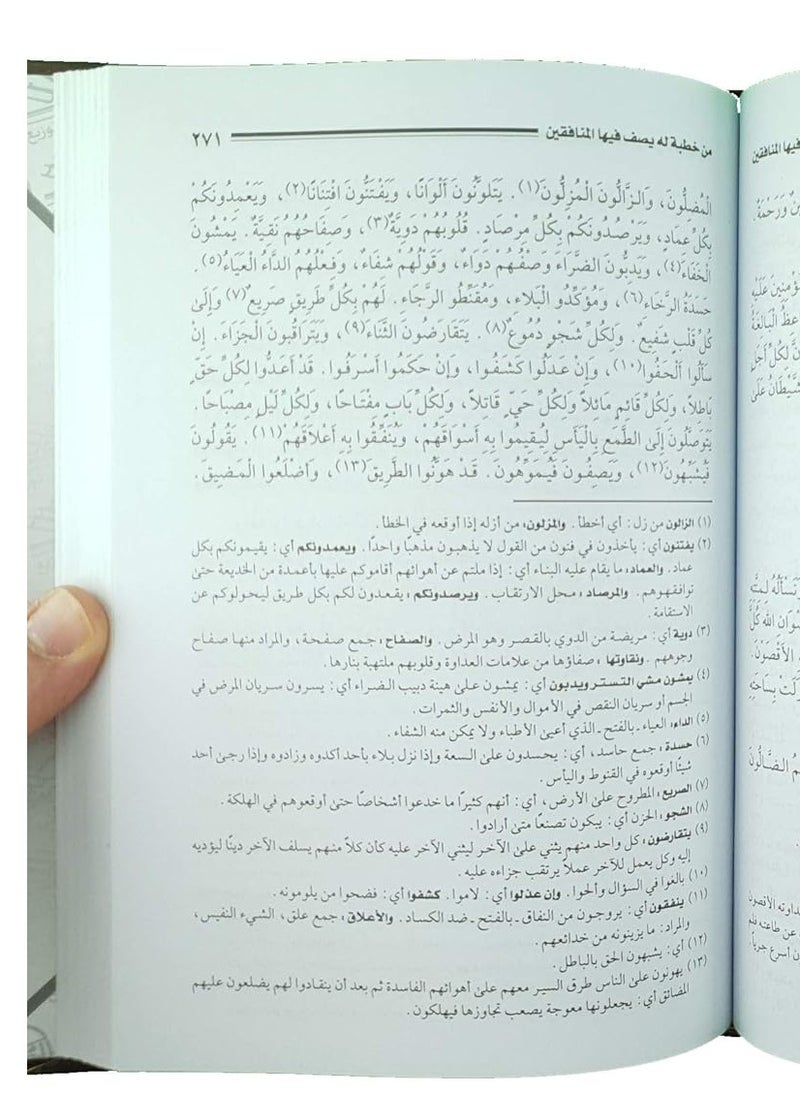 من خطبة له يصف فيها المنافقين ٢٧١
المُضِلُّونَ، وَالزَّالُّونَ الْمُزِلُّونَ(١). يَتَلَوَّنُونَ أَلْوَانًا، وَيَفْتَنُّونَ افْتِنَانًا(٢)، وَيَعْمِدُونَكُمْ
بِكُلِّ عِمَادٍ، وَيَرْصُدُونَكُمْ بِكُلِّ مِرْصَادٍ. قُلُوبُهُمْ دَوِيَّةٌ(٣)، وَصِفَاحُهُمْ نَقِيَّةٌ. يَمْشُونَ
الْخَفَاءَ(٤)، وَيَدِبُّونَ الضَّرَاءَ وَصْفُهُمْ دَوَاءٌ، وَقَوْلُهُمْ شِفَاءٌ، وَفِعْلُهُمُ الدَّاءُ الْعَيَاءُ(٥).
حَسَدَةُ الرَّخَاءِ(٦)، وَمُؤَكِّدُو الْبَلَاءِ، وَمُقَنِّطُو الرَّجَاءِ. لَهُمْ بِكُلِّ طَرِيقٍ صَرِيعٌ(٧) وَإِلَى
كُلِّ قَلْبٍ شَفِيعٌ. وَلِكُلِّ شَجْوٍ دُمُوعٌ(٨). يَتَقَارَضُونَ الثَّنَاءَ(٩)، وَيَتَرَاقَبُونَ الْجَزَاءَ. إِنْ
سَأَلُوا أَلْحَفُوا(١٠)، وَإِنْ عَدَلُوا كَشَفُوا، وَإِنْ حَكَمُوا أَسْرَفُوا. قَدْ أَعَدُّوا لِكُلِّ حَقٍّ
بَاطِلًا، وَلِكُلِّ قَائِمٍ مَائِلًا وَلِكُلِّ حَيٍّ قَاتِلًا، وَلِكُلِّ بَابٍ مِفْتَاحًا، وَلِكُلِّ لَيْلٍ مِصْبَاحًا.
يَتَوَصَّلُونَ إِلَى الطَّمَعِ بِالْيَأْسِ لِيُقِيمُوا بِهِ أَسْوَاقَهُمْ، وَيُنَفِّقُوا بِهِ أَعْلَاقَهُمْ(١١). يَقُولُونَ
فَيُشَبِّهُونَ(١٢)، وَيَصِفُونَ فَيُمَوِّهُونَ. قَدْ هَوَّنُوا الطَّرِيقَ(١٣)، وَأَضْلَعُوا الْمَضِيقَ.
(١) الزالون من زل: أي أخطأ. والمزلون، من أزله إذا أوقعه في الخطأ.
(٢) يفتنون أي: يأخذون في فنون من القول لا يذهبون مذهبًا واحدًا. ويعمدونكم أي: يقيمونكم بكل
عماد. والعماد، ما يقام عليه البناء أي: إذا ملتم عن أهوائهم أقاموكم عليها بأعمدة من الخديعة حتى
توافقهوهم. والمرصاد، محل الارتقاب. ويرصدونكم، يقعدون لكم بكل طريق ليحولوكم عن
الاستقامة.
(٣) دوية أي: مريضة من الدوي بالقصر وهو المرض. والصفاح، جمع صفحة، والمراد منها صفاح
وجوههم. ونقاوتها، صفاؤها من علامات العداوة وقلوبهم ملتهبة بنارها.
(٤) يمشون مشي التستر ويدبون أي: يمشون على هيئة دبيب الضراء أي: يسرون سريان المرض في
الجسم أو سريان النقص في الأموال والأنفس والثمرات.
(٥) الداء، العياء ـ بالفتح ـ الذي أعيى الأطباء ولا يمكن منه الشفاء.
(٦) حسدة، جمع حاسد، أي: يحسدون على السعة وإذا نزل بلاء بأحد أكدوه وزادوه وإذا رجى أحد
شيئًا أوقعوه في القنوط واليأس.
(٧) الصريع، المطروح على الأرض، أي: أنهم كثيرًا ما خدعوا أشخاصًا حتى أوقعوهم في الهلكة.
(٨) الشجو، الحزن أي: يبكون تصنعًا متى أرادوا.
(٩) يتقارضون، كل واحد منهم يثني على الآخر ليثني الآخر عليه كأن كلًا منهم يسلف الآخر دينًا ليؤديه
إليه وكل يعمل للآخر عملًا يرتقب جزاءه عليه.
(١٠) بالغوا في السؤال وألحوا. وإن عذلوا أي: لاموا. كشفوا أي: فضحوا من يلومونه.
(١١) ينفقون أي: يروجون من النفاق ـ بالفتح ـ ضد الكساد. والأعلاق، جمع علق، الشيء النفيس،
والمراد: ما يزينونه من خدائعهم.
(١٢) أي: يشبهون الحق بالباطل.
(١٣) يهونون على الناس طرق السير معهم على أهوائهم الفاسدة ثم بعد أن ينقادوا لهم يضلعون عليهم
المضائق أي: يجعلونها معوجة يصعب تجاوزها فيهلكون.
فيها المنافقين